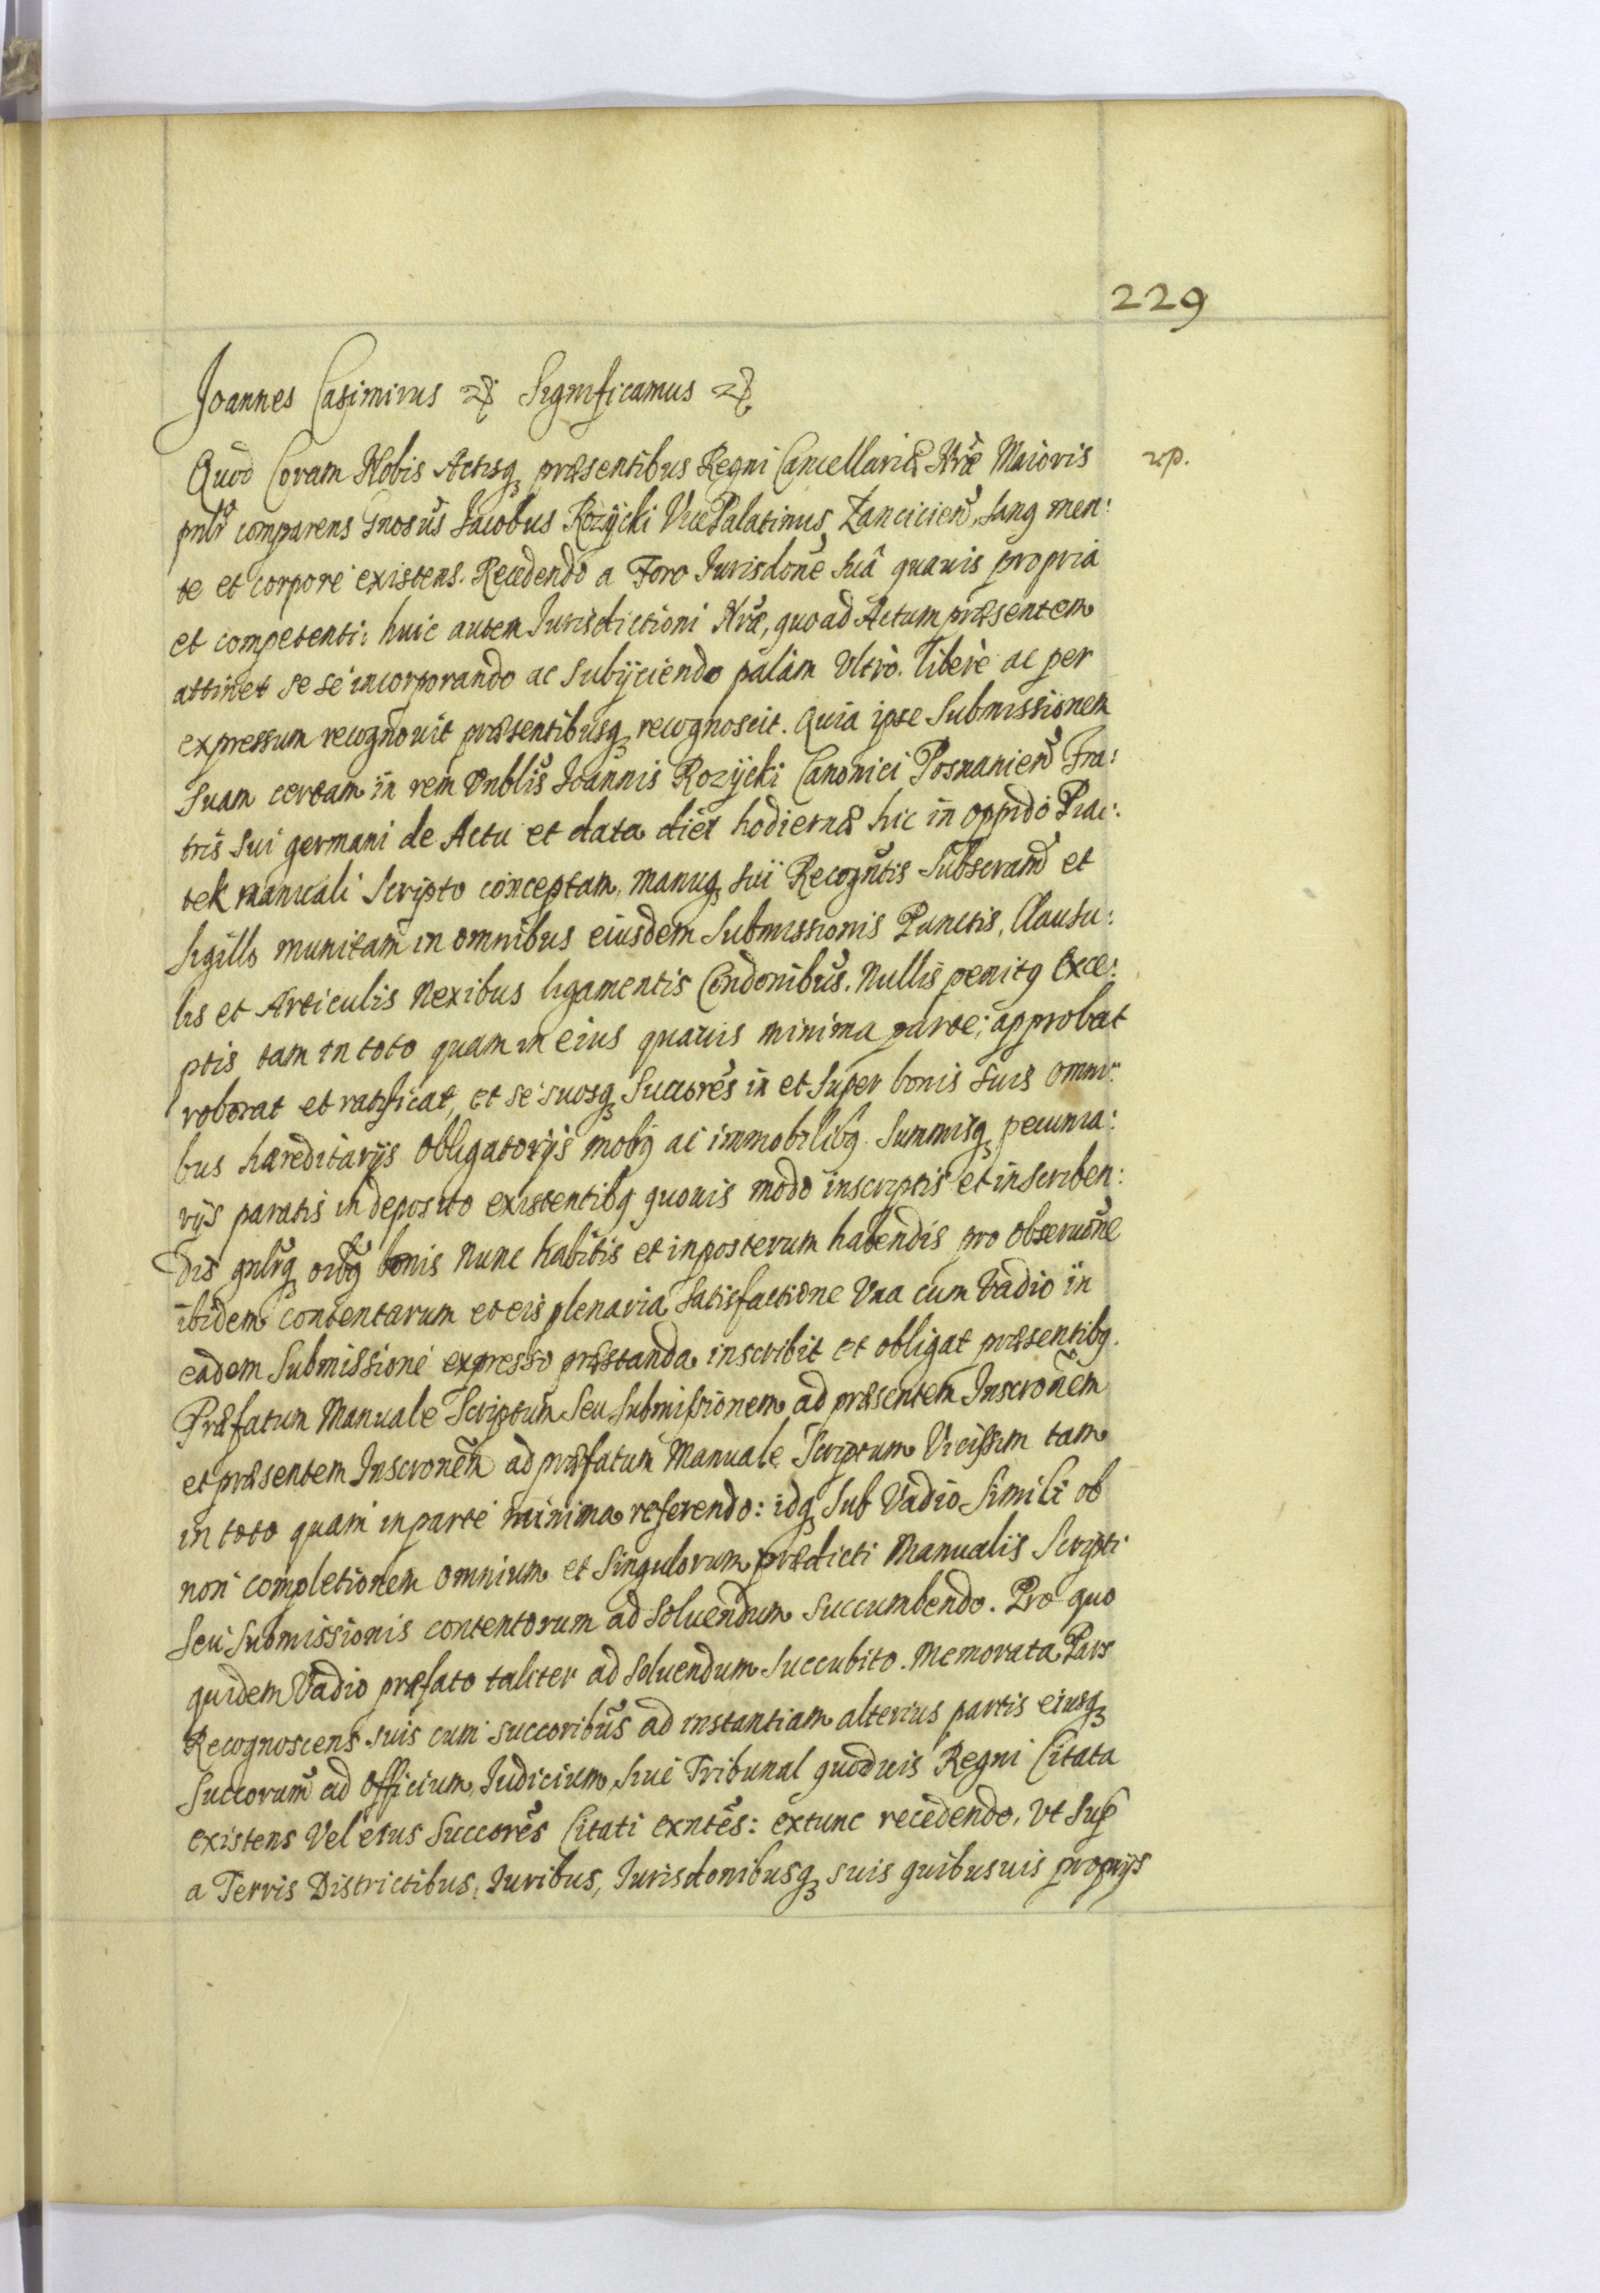 229
Joannes Casimirus &c Significamus &c
Quod Coram Nobis Actisq, præsentibus Regni Cancellariæ Nræ Maioris
rp.
pnlr comparens Gnosus Jacobus Rozycki VicePalatinus Lancicien, Sang men:
te et corpore existens. Recedendo a Foro Jurisdone sua quavis propria
et competenti: huic autem Jurisdictioni Nræ, quo ad Actum præsentem
attinet se se incorporando ac subijciendo palam Vltro. libere ac per
expressum recognovit præsentibusq, recognoscit. Quia ipse Submissionem
Suam certam in rem Vnblis Joannis Rozycki Canonici Posnanien Fra:
tris sui germani de Actu et data diei hodiernæ hic in oppido Piac:
tek manuali Scripto conceptam, manuq, sui Recogntis Subscram et
Sigillo munitam in omnibus eiusdem Submissionis Punctis, Clausu:
lis et Articulis Nexibus ligamentis Condonibus. Nullis penitg Exce:
ptis tam in toto quam in eius quavis minima parte; approbat
roborat et ratificat, et se suosq, Succores in et super bonis suis omni:
bus hæreditarijs obligatorijs mobg ac immobilibg. Summisq, pecunia:
rijs paratis in deposito existentibg quovis modo inscriptis et inscriben:
dis gnlrq, oibg bonis nunc habitis et inposterum habendis pro observone
ibidem contentarum et eis plenaria Satisfactione Vna cum Vadio in
eadem Submissione expresso præstanda inscribit et obligat præsentibg.
Præfatum Manuale Scriptum Seu Submissionem ad præsentem Inscronem
et præsentem Inscronem ad præfatum Manuale Scriptum Vicissim tam
in toto quam in parte minima referendo: idq, Sub Vadio Simili ob
non completionem omnium et Singulorum prædicti Manualis Scripti
Seu Submissionis contentorum ad Solvendum Succumbendo. Pro quo
quidem Vadio præfato taliter ad Solvendum Succubito. Memorata Pars
Recognoscens suis cum succoribus ad instantiam alterius partis eiusq,
Succorum ad Officium, Judicium, Sive Tribunal quodvis Regni Citata
existens Vel eius Succores Citati exntes: extunc recedendo, Vt Sup
a Terris Districtibus, Juribus, Jurisdonibusq, suis quibusuis proprijs